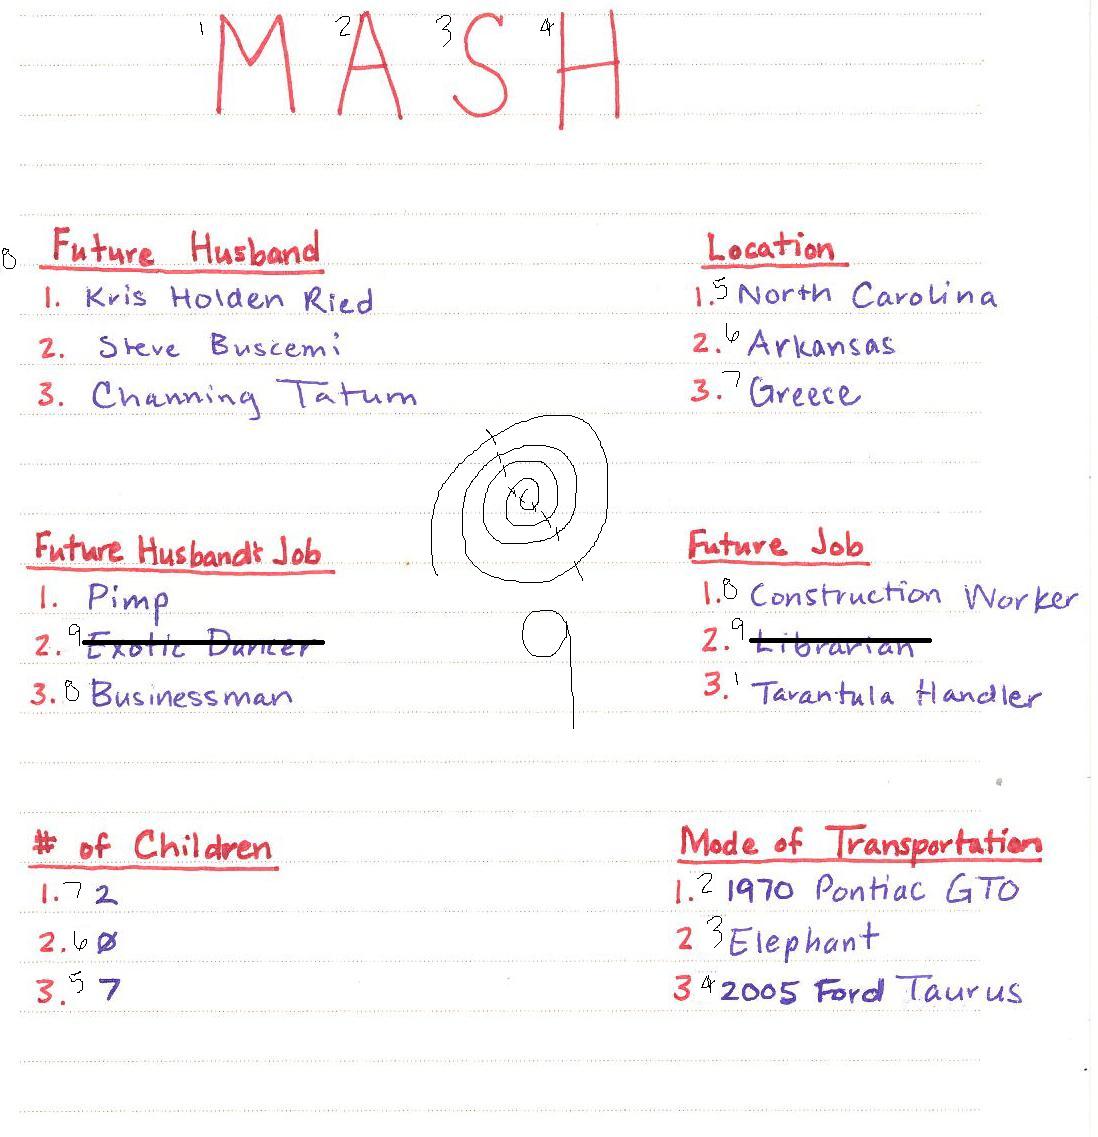 1 M 2 A 3 S 4 H
8 Future Husband
1. Kris Holden Ried
2. Steve Buscemi
3. Channing Tatum
Location
1. 5 North Carolina
2. 6 Arkansas
3. 7 Greece
Future Husband's Job
1. Pimp
2. 9 Exotic Dancer
3. 8 Businessman
9
Future Job
1. 8 Construction Worker
2. 9 Librarian
3. 1 Tarantula Handler
# of Children
1. 7 2
2. 6 Ø
3. 5 7
Mode of Transportation
1. 2 1970 Pontiac GTO
2 3 Elephant
3 4 2005 Ford Taurus